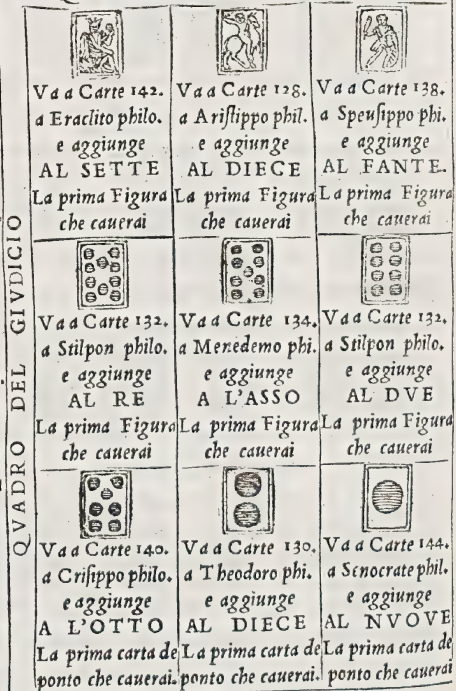 QVADRO DEL GIVDICIO
Va a Carte 142.
a Eraclito philo.
e aggiunge
AL SETTE
La prima Figura
che cauerai
Va a Carte 128.
a Ariſtippo phil.
e aggiunge
AL DIECE
La prima Figura
che cauerai
Va a Carte 138.
a Speuſippo phi.
e aggiunge
AL FANTE.
La prima Figura
che cauerai
Va a Carte 132.
a Stilpon philo.
e aggiunge
AL RE
La prima Figura
che cauerai
Va a Carte 134.
a Menedemo phi.
e aggiunge
A L'ASSO
La prima Figura
che cauerai
Va a Carte 132.
a Stilpon philo.
e aggiunge
AL DVE
La prima Figura
che cauerai
Va a Carte 140.
a Criſippo philo.
e aggiunge
A L'OTTO
La prima carta de
ponto che cauerai.
Va a Carte 130.
a Theodoro phi.
e aggiunge
AL DIECE
La prima carta de
ponto che cauerai.
Va a Carte 144.
a Senocrate phil.
e aggiunge
AL NVOVE
La prima carta de
ponto che cauerai